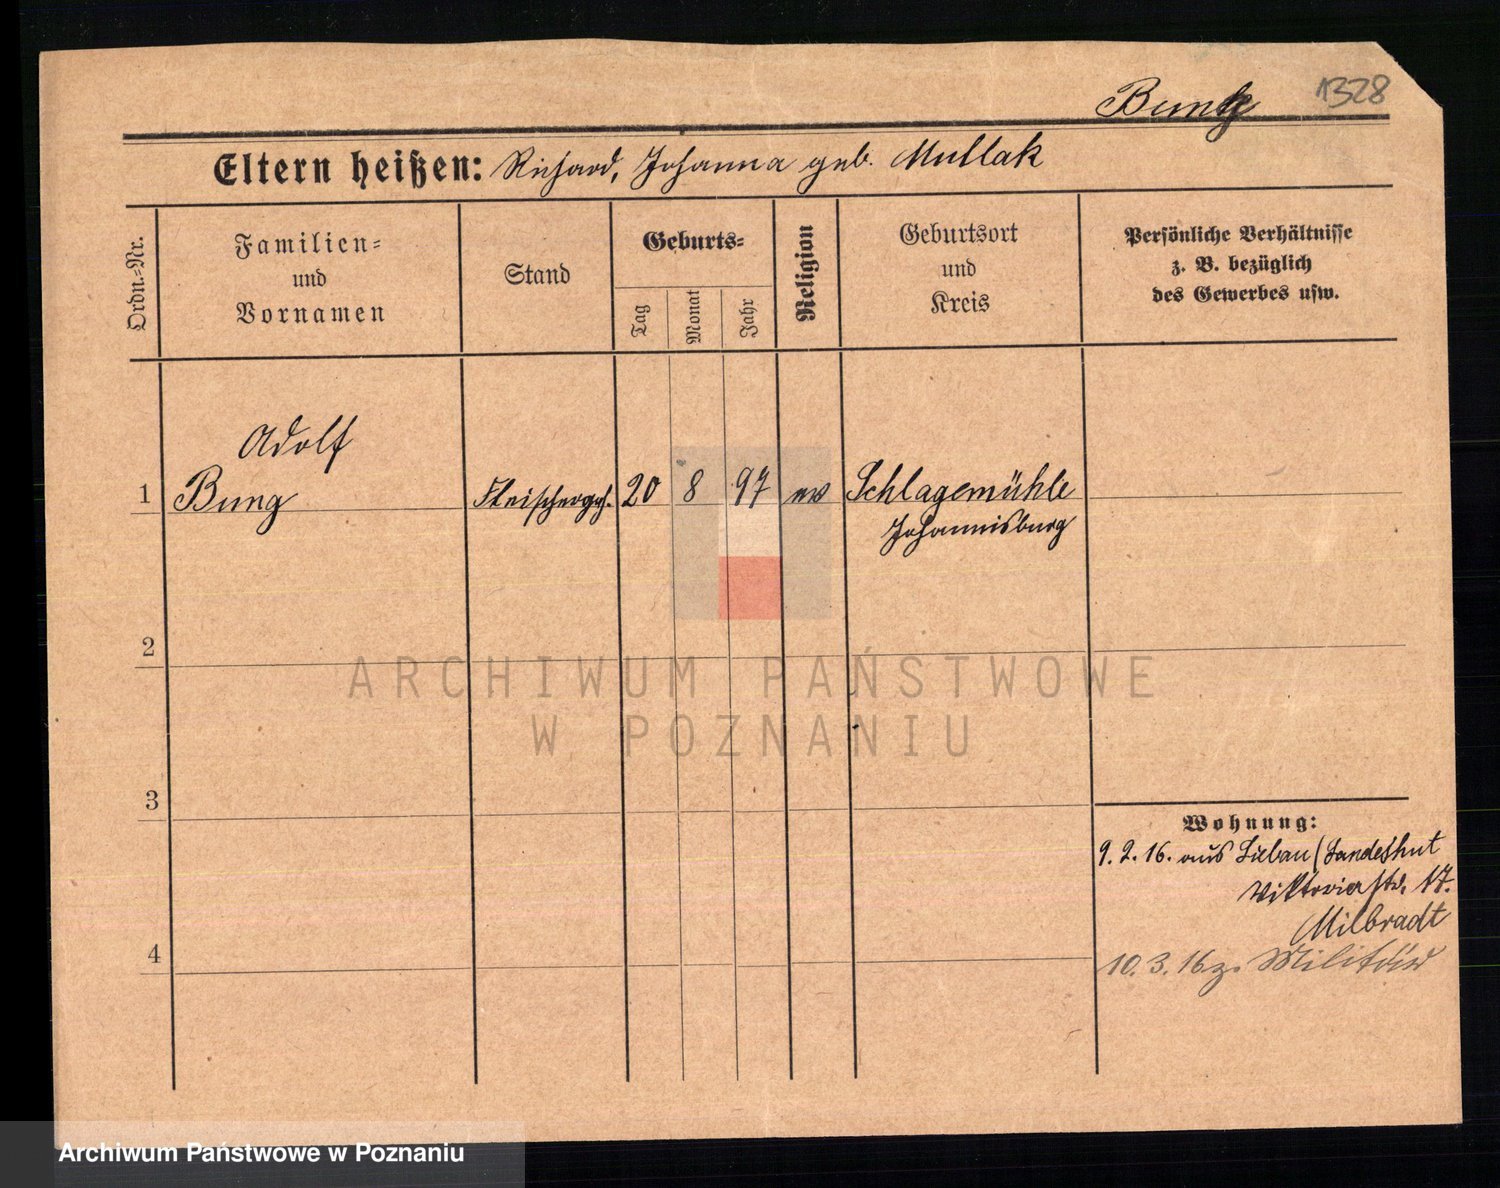 Bung
1328
Eltern heißen: Richard, Johanna geb. Mullak
Ordn.-Nr.
Familien-
und
Vornamen
Stand
Geburts-
Tag
Monat
Jahr
Religion
Geburtsort
und
Kreis
Persönliche Verhältnisse
z. B. bezüglich
des Gewerbes usw.
Adolf
1 Bung Fleischerges. 20 8 97 ev Schlagemühle
Johannisburg
2
3
4
Wohnung:
9.2.16. aus Liebau (Landeshut
Viktoriastr. 17.
Milbradt
10.3.16 z. Militär
ARCHIWUM PAŃSTWOWE
W POZNANIU
Archiwum Państwowe w Poznaniu